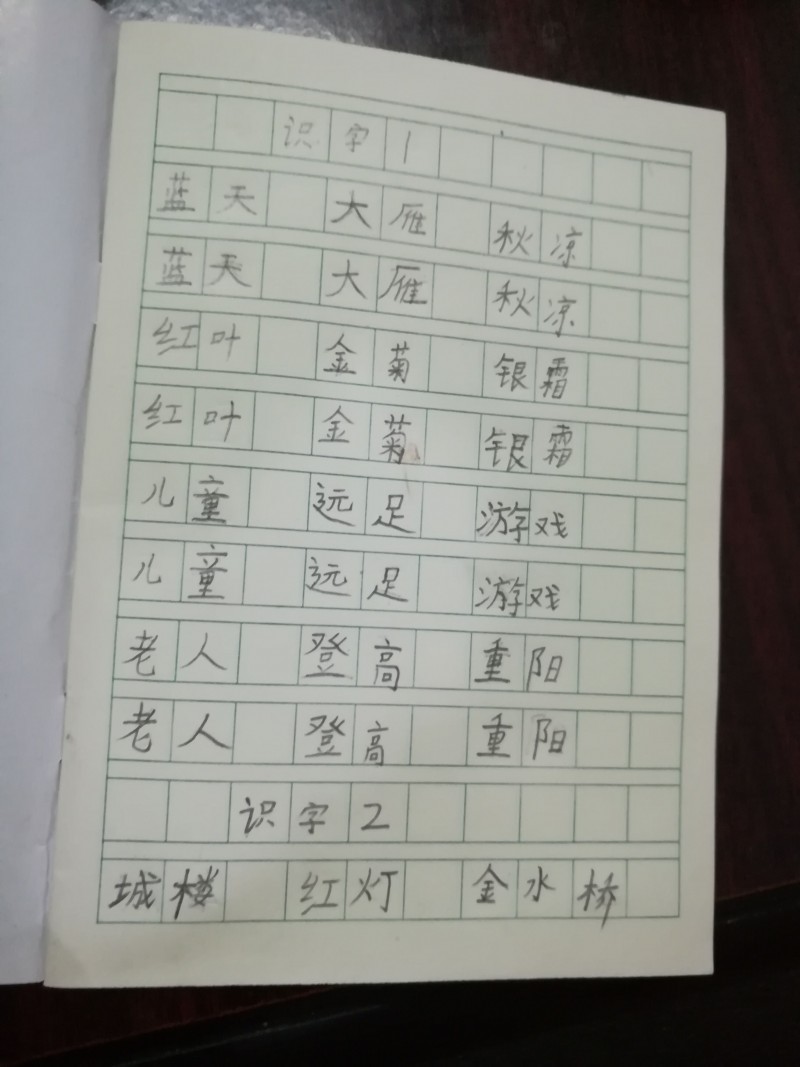 识字1
蓝天 大雁 秋凉
蓝天 大雁 秋凉
红叶 金菊 银霜
红叶 金菊 银霜
儿童 远足 游戏
儿童 远足 游戏
老人 登高 重阳
老人 登高 重阳
识字2
城楼 红灯 金水桥